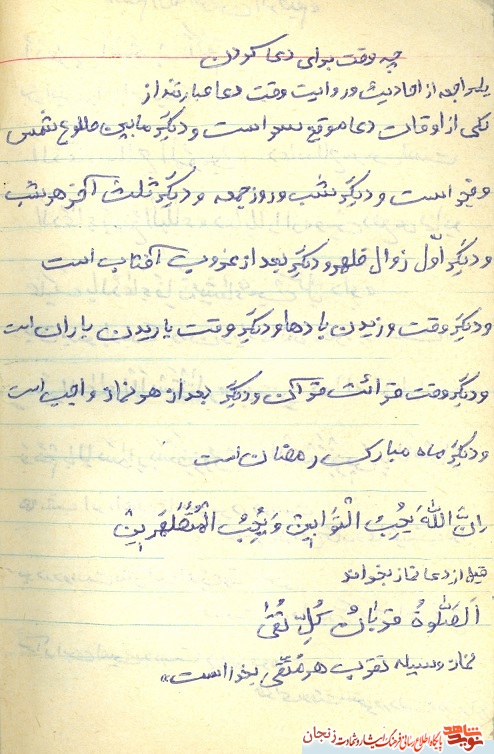 چه وقت برای دعا کردن
از احادیث و روایت وقت دعا عبارتند از
یکی از اوقات دعا موقع سحر است و دیگر مابین طلوع شمس
و فجر است و دیگر شب و روز جمعه و دیگر ثلث آخر هر شب
و دیگر اوّل زوال ظهر و دیگر بعد از غروب آفتاب است
و دیگر وقت وزیدن بادها و دیگر وقت باریدن باران است
و دیگر وقت قرائت قرآن و دیگر بعد از هر نماز واجب است
و دیگر ماه مبارک رمضان است
اِنَّ اللّٰهَ یُحِبُّ التَّوابینَ وَ یُحِبُّ الْمُتَطَهِّرینَ
قبل از دعا نماز بخواند
اَلصَّلوةُ قربانُ کُلِّ تَقیٍّ
نماز وسیله تقرب هر متّقی بخدا است»
نوید شاهد
پایگاه اطلاع رسانی فرهنگ ایثار و شهادت زنجان